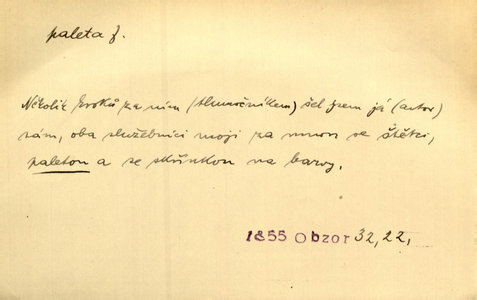 paleta f.
Několik kroků za ním (tlumočníkem) šel jsem já (autor)
sám, oba služebníci moji za mnou se štětci,
paletou a se skřínkou na barvy.
1855 Obzor 32, 22,